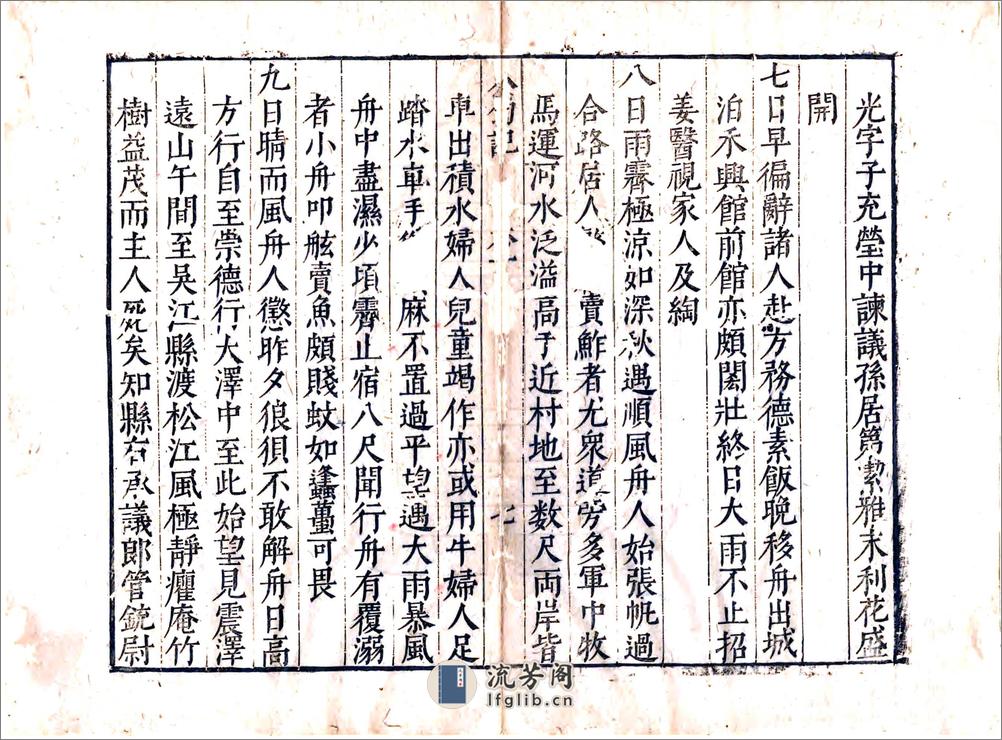 光字子充瑩中諫議孫居第潔雅末利花盛
開
七日早徧辭諸人赴方務德素飯晚移舟出城
泊禾興館前館亦頗閎壯終日大雨不止招
姜醫視家人及綯
八日雨霽極涼如深秋遇順風舟人始張帆過
合路居人 賣鮓者尤衆道旁多軍中牧
馬運河水泛溢高于近村地至数尺両岸皆
七
車出積水婦人兒童竭作亦或用牛婦人足
踏水車手 麻不置過平望遇大雨暴風
舟中盡濕少頃霽止宿八尺聞行舟有覆溺
者小舟叩舷賣魚頗賤蚊如蠭蠆可畏
九日晴而風舟人懲昨夕狼狽不敢解舟日高
方行自至崇德行大澤中至此始望見震澤
遠山午間至吳江縣渡松江風極靜癯庵竹
樹益茂而主人死矣知縣右承議郎管銃尉
流芳閣
lfglib.cn